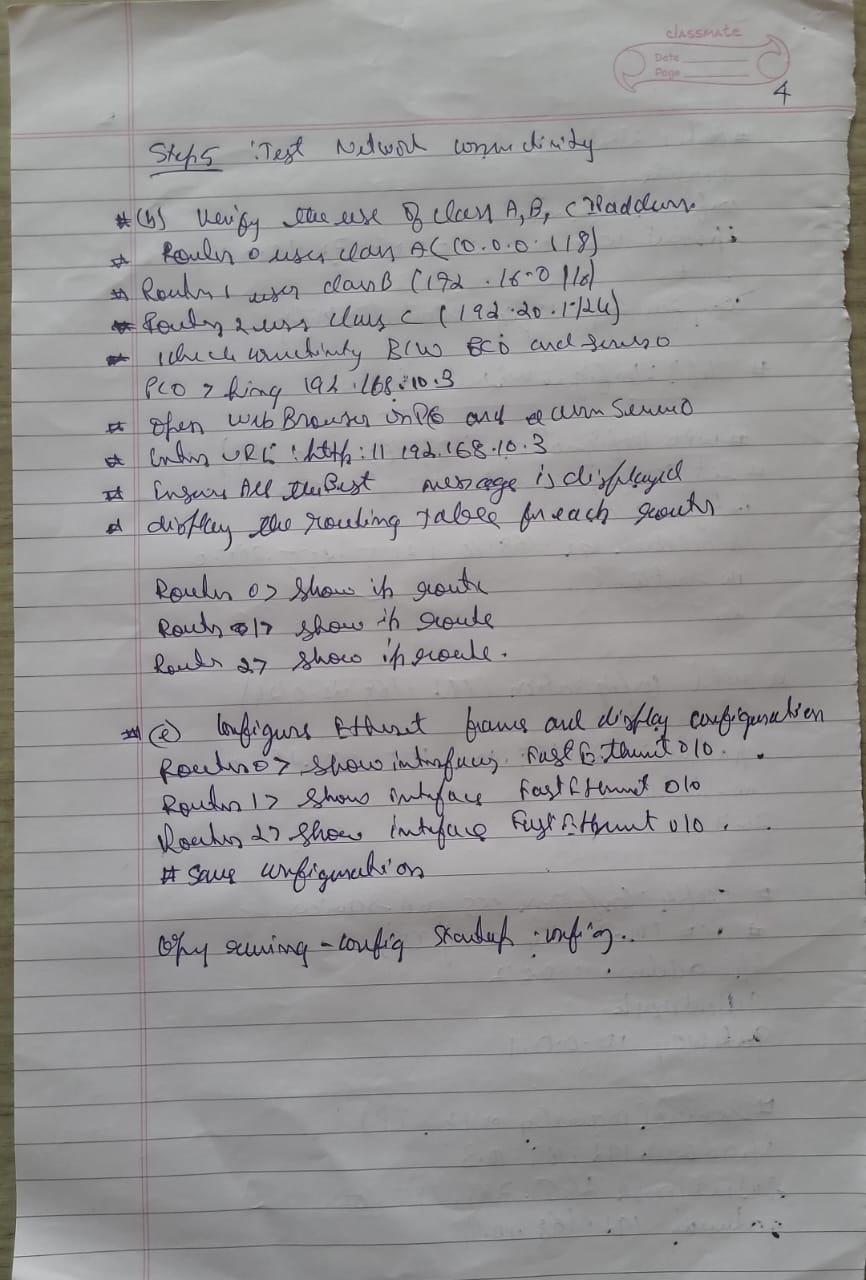 classmate
Date
Page
4
Step 5 : Test Network connectivity
* (b) Verify the use of class A, B, C IP address.
* Router 0 uses class A (10.0.0.0 /8)
* Router 1 uses class B (192.16.0 /16)
* Router 2 uses class C (192.20.1/24)
* check connectivity B/W PC0 and server 0
PC0 > Ping 192.168.10.3
* Open web Browser in PC0 and server 0
* Enter URL : http : // 192.168.10.3
* Ensure All the Best message is displayed
* display the routing table for each router
Router 0> Show ip route
Router 1> show ip route
Router 2> show ip route.
* (c) Configure Ethernet frames and display configuration
Router 0> show interfaces FastEthernet 0/0.
Router 1> show interface FastEthernet 0/0
Router 2> show interface FastEthernet 0/0.
# Save configuration
Copy running - config Startup - config..